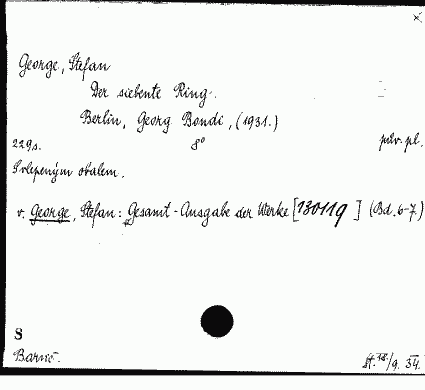 George, Stefan
Der siebente Ring.
Berlin, Georg Bondi, (1931.)
229 s. 8° pův. pl.
S vlepeným obalem.
v. George, Stefan: Gesamt-Ausgabe der Werke [130119] (Bd. 6-7.)
S
Barvič. 34.